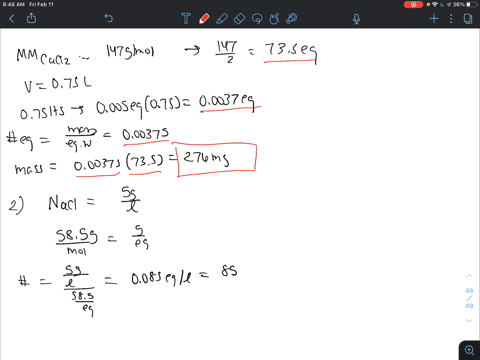 8:48 AM Fri Feb 11
36%
MM CaCl2 — 147g/mol → 147/2 = 73.5eq
V = 0.75L
0.75lts → 0.005eq(0.75) = 0.0037eq
#eq = mass/eq.w = 0.00375
mass = 0.00375(73.5) = 276mg
2) NaCl = 5g/l
58.5g/mol = g/eq
# = 5g/l / 58.5/eq = 0.085eq/l = 85
48
49